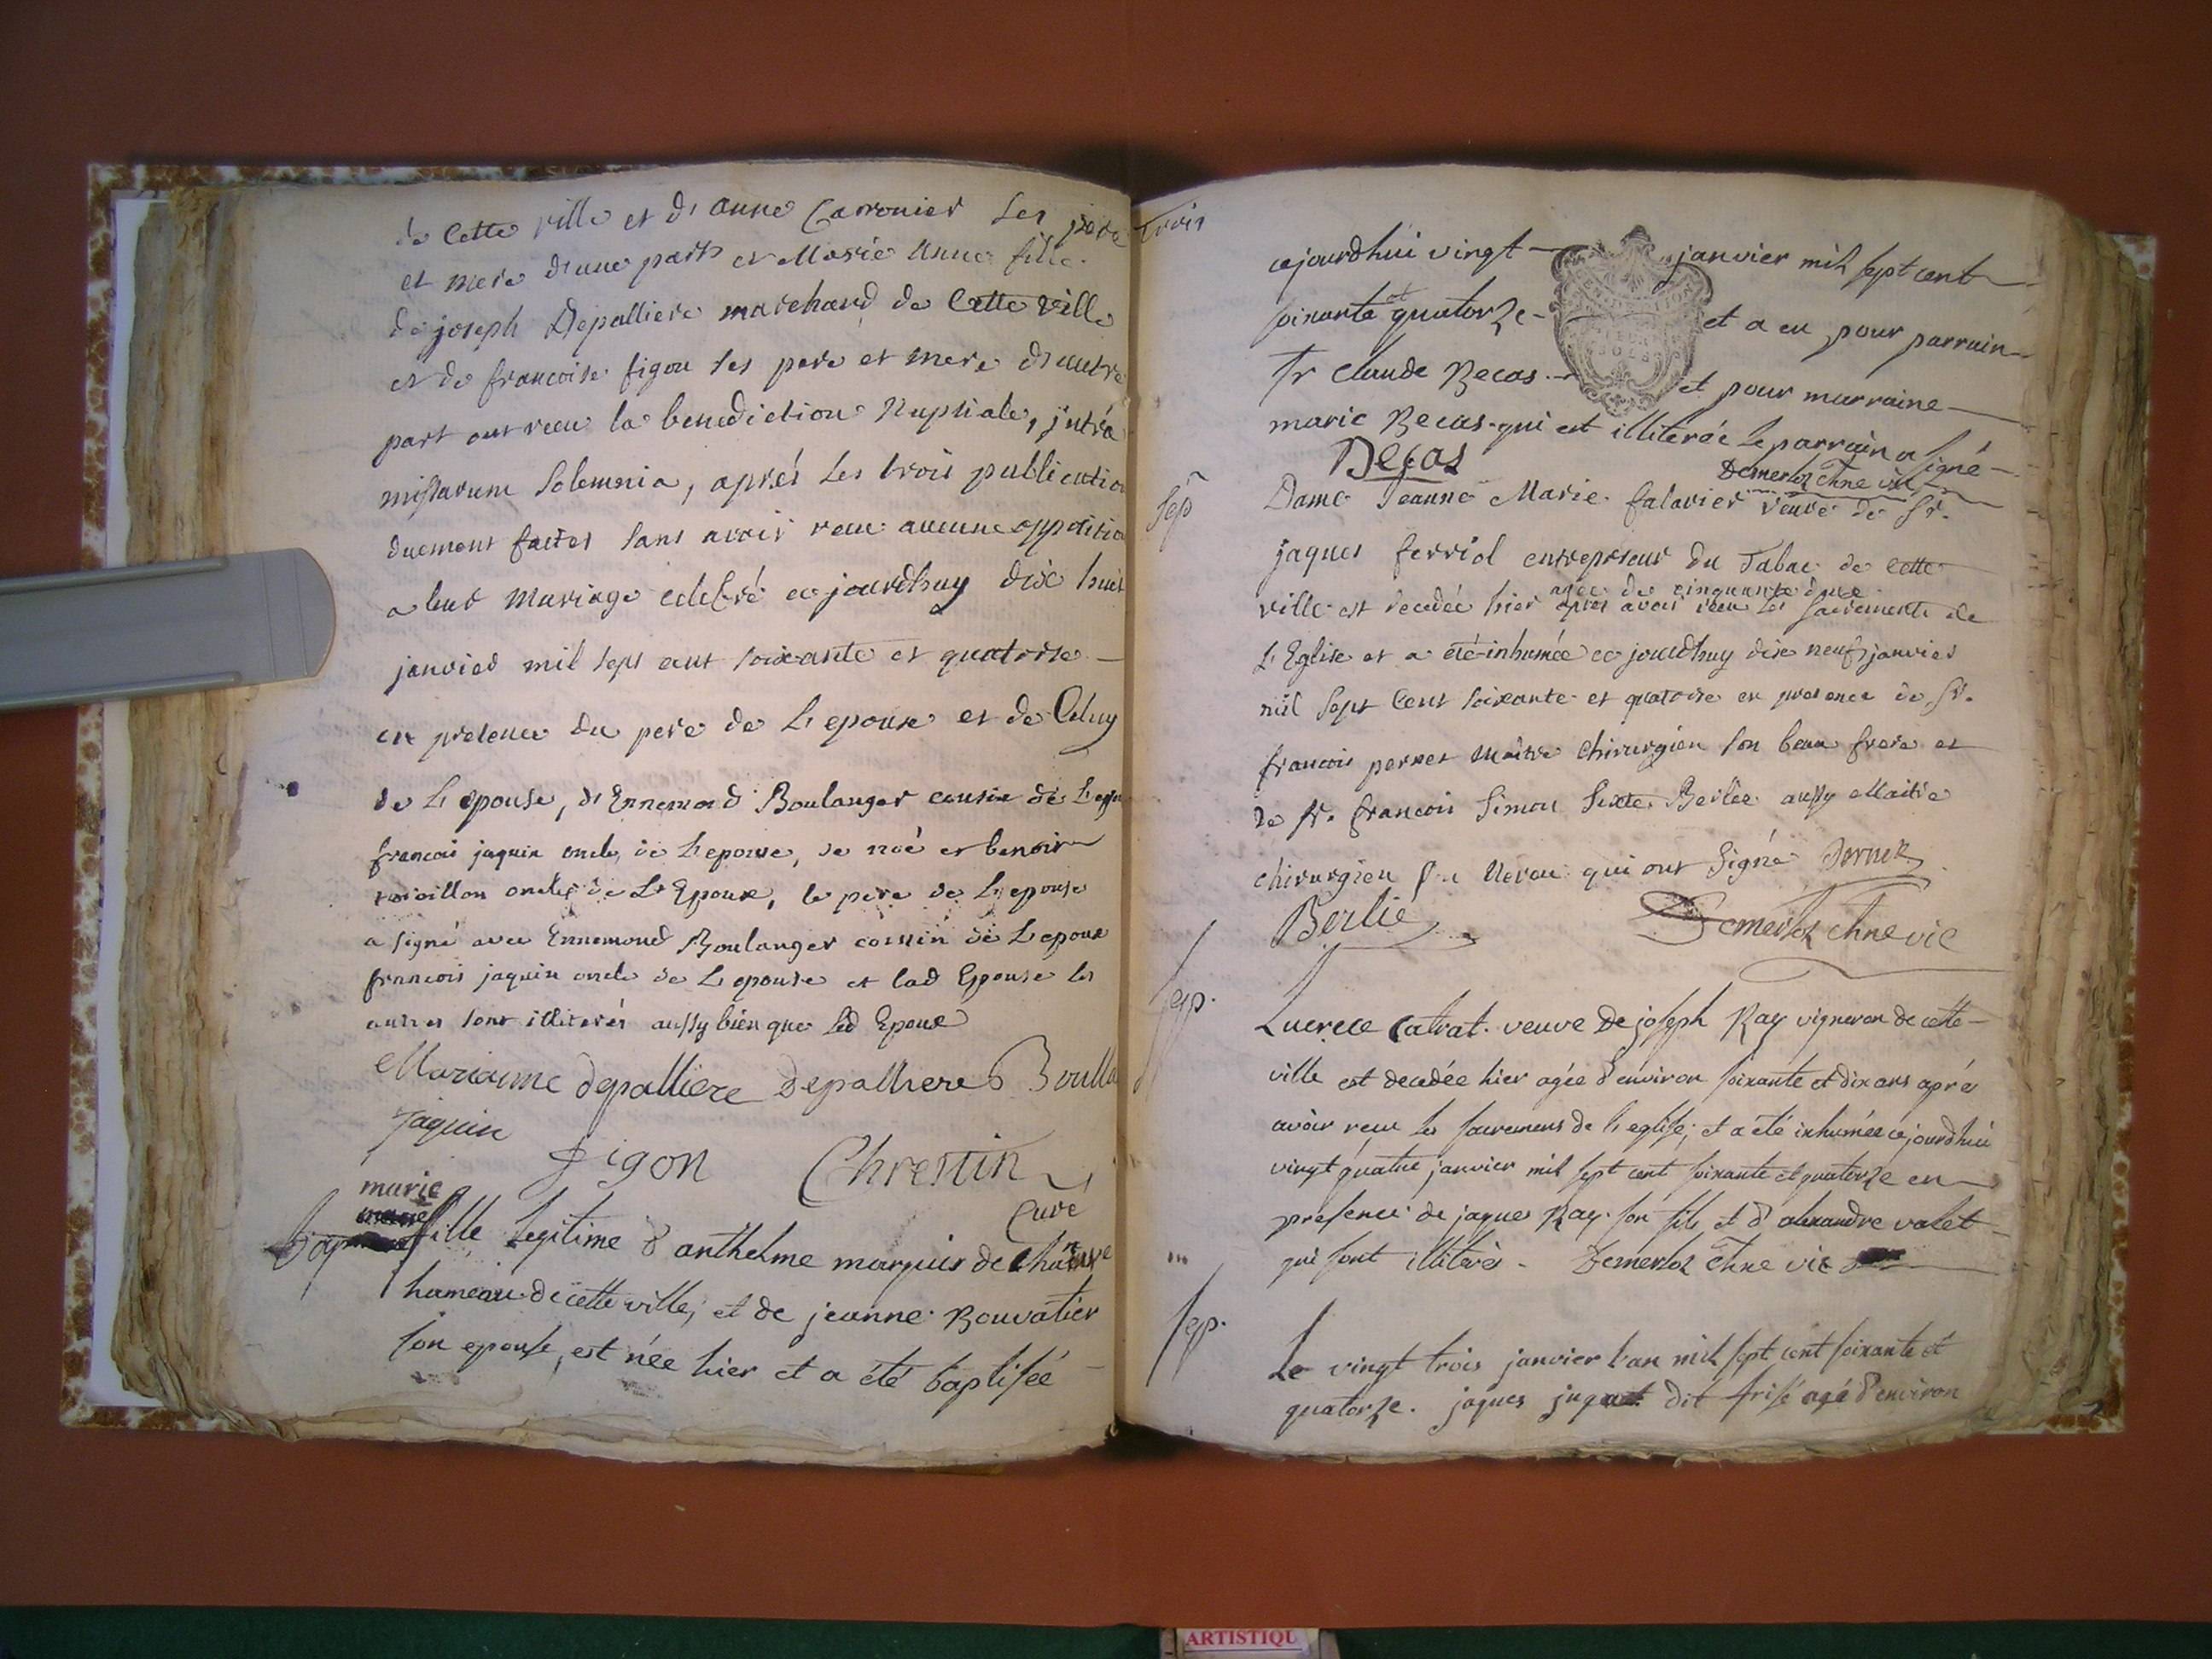 de Cette ville et d'anne Carronier ses pere
et mere d'une part et Marie Anne fille
de joseph Depalliere marchand de Cette ville
et de francoise figon ses pere et mere d'autre
part ont recu la benediction Nuptiale, jntra
missarum Solemnia, aprés les trois publicatio
duement faites sans avoir recu aucune oppositio
a leur mariage celebré ce jourdhuy dix huit
janvier mil sept cent soixante et quatorse
en presence du pere de L'epouse et de Celuy
de L'epouse, d'Ennemond Boulanger cousin de L'epou
francois jaquin oncle de L'epouse, de noé et benoit
oncles de L'Epoux, le pere de L'epouse
a signé avec Ennemond Boulanger cousin de L'epoux
francois jaquin oncle de L'epouse et lad Epouse les
autres sont illiterés aussy bien que led Epoux
Marianne depalliere Depalliere Boulla
jaquin
figon Chrestin
Curé
marie
Bap fille legitime d'anthelme marquis de
hameau de cette ville, et de jeanne Bouvatier
son epouse, est née hier et a été baptisée
trois
cejourdhui vingt janvier mil sept cent
soixante et quatorze et a eu pour parrain
sr Claude Becas et pour marraine
marie Becas qui est illiterée le parrain a signé
Becas Demerloz Chne vic
Sep
Dame Jeanne Marie falavier veuve de Sr.
jaques ferriol entreposeur du Tabac de cette
agée de cinquante deux
ville est decedée hier apres avoir recu les sacrements de
L'Eglise et a été inhumée ce jourdhuy dix neuf janvier
mil sept Cent soixante et quatorse en presence de Sr.
francois pernet Maitre Chirurgien son beau frere et
de Sr. francois Simon Sixte Berlie aussy Maitre
chirurgien son Neveu qui ont Signé Pernet
Berlié Demerloz Chne vic
Sep.
Lucrece Catrat veuve de joseph Ray vigneron de cette
ville est decedée hier agée d'environ soixante et dix ans aprés
avoir recu les sacremens de l'eglise, et a été inhumée cejourdhui
vingt quatre janvier mil sept cent soixante et quatorze en
presence de jaques Ray son fils et d'alexandre valet
qui sont illiterés - Demerloz Chne vic
Sep.
Le vingt trois janvier l'an mil sept cent soixante et
quatorze. jaques dit frisé agé d'environ
ARTISTIQU